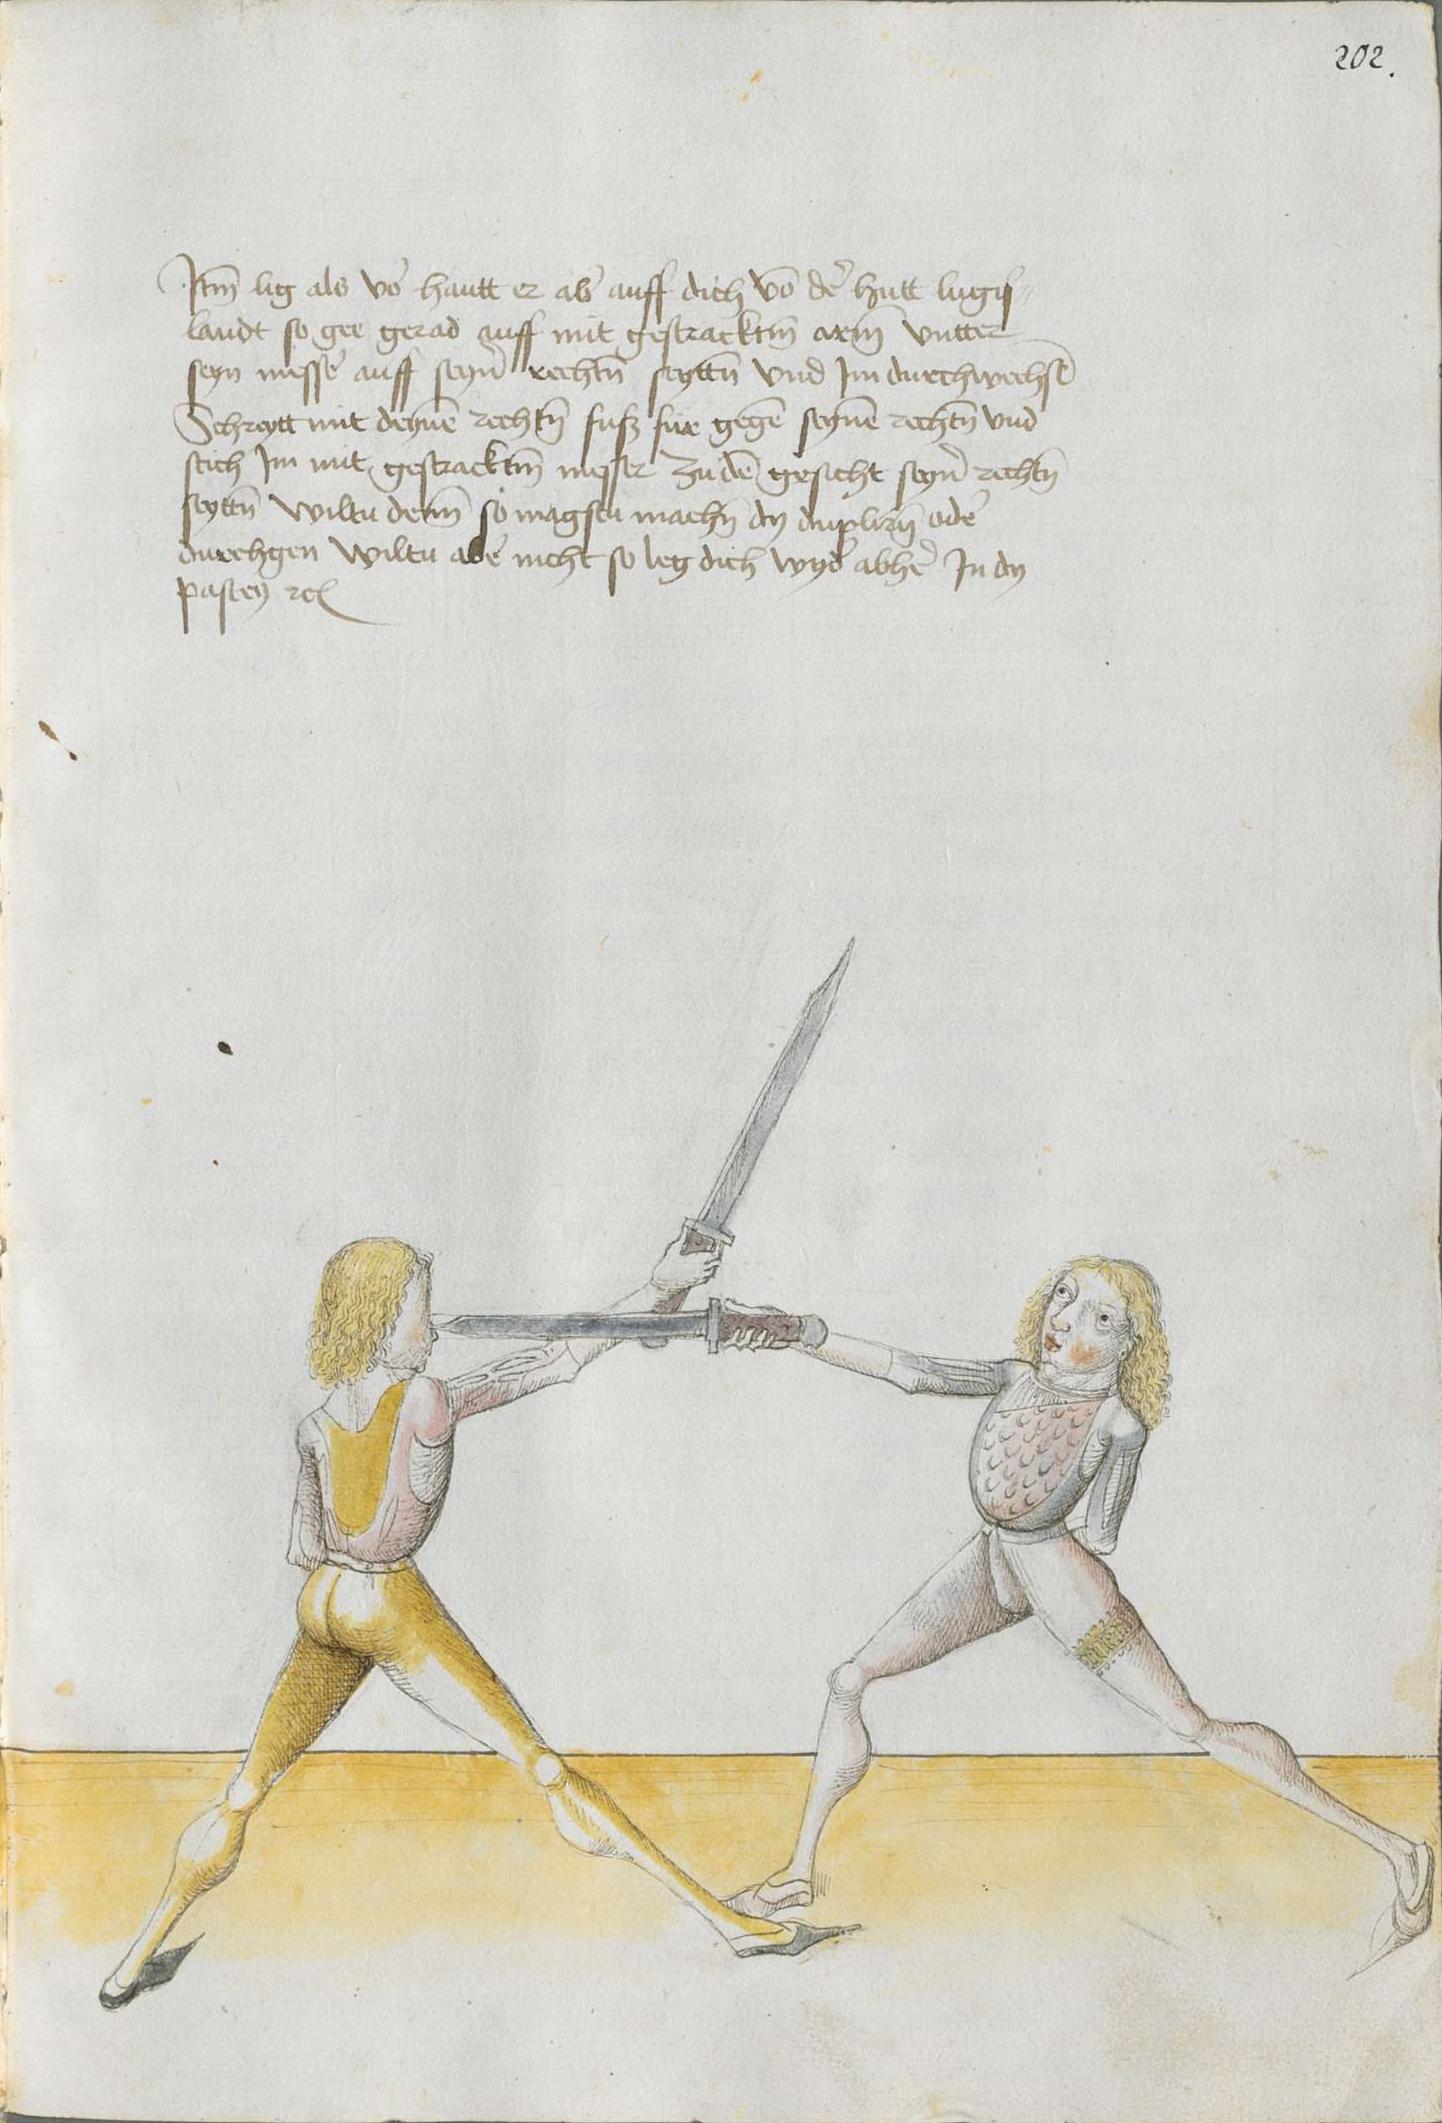 202.
Itm̄ lig als vō hautt er ab̄ auff dich vō der̄ hutt lugiß-
landt so gee gerad auff mit gestracktm̄ arm̄ vntter
seyn messē auff seyn̄ rechtn̄ seyttn̄ vnd Im durchwechsel
Schreytt mit deynē rechtn̄ fuß für gegē seynē rechtn̄ vnd
stich Im mit gestracktm̄ messer zu dē gesicht seyn̄ rechtn̄
seyttn̄ wiltu denn̄ so magstu machn̄ dy duplirn̄ odē
durchgen wiltu abē nicht so leg dich wydē abhē In dy
pastey rc